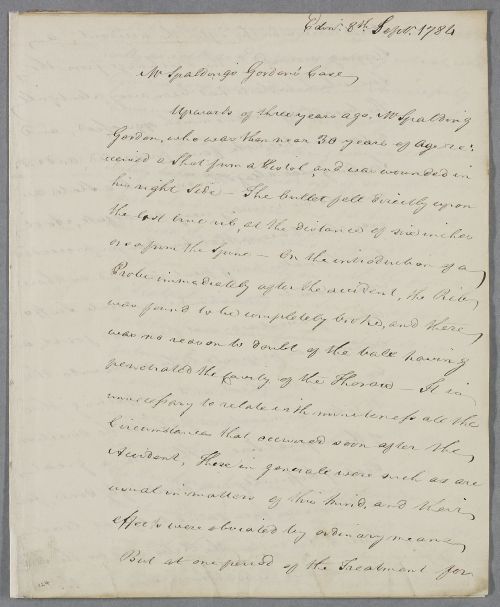 Edinr. 8th Septr. 1784
Mr Spalding Gordon's Case
Upwards of three years ago, Mr Spalding
Gordon, who was then near 30 years of age re:
ceived a Shot from a Pistol and was wounded in
his right Side – The bullet fell directly upon
the last true rib, at the distance of six inches
or so from the Spine – On the introduction of a
Probe immediately after the accident, the Rib
was found to be completely broke, and there
was no reason to doubt of the ball having
penetrated the Cavity of the Thorax – It is
unnecessary to relate with minuteness all the
Circumstances that occurred soon after the
Accident, These in general were such as are
usual in matters of this kind, and their
effects were obviated by ordinary means
But at one period of the Treatment for